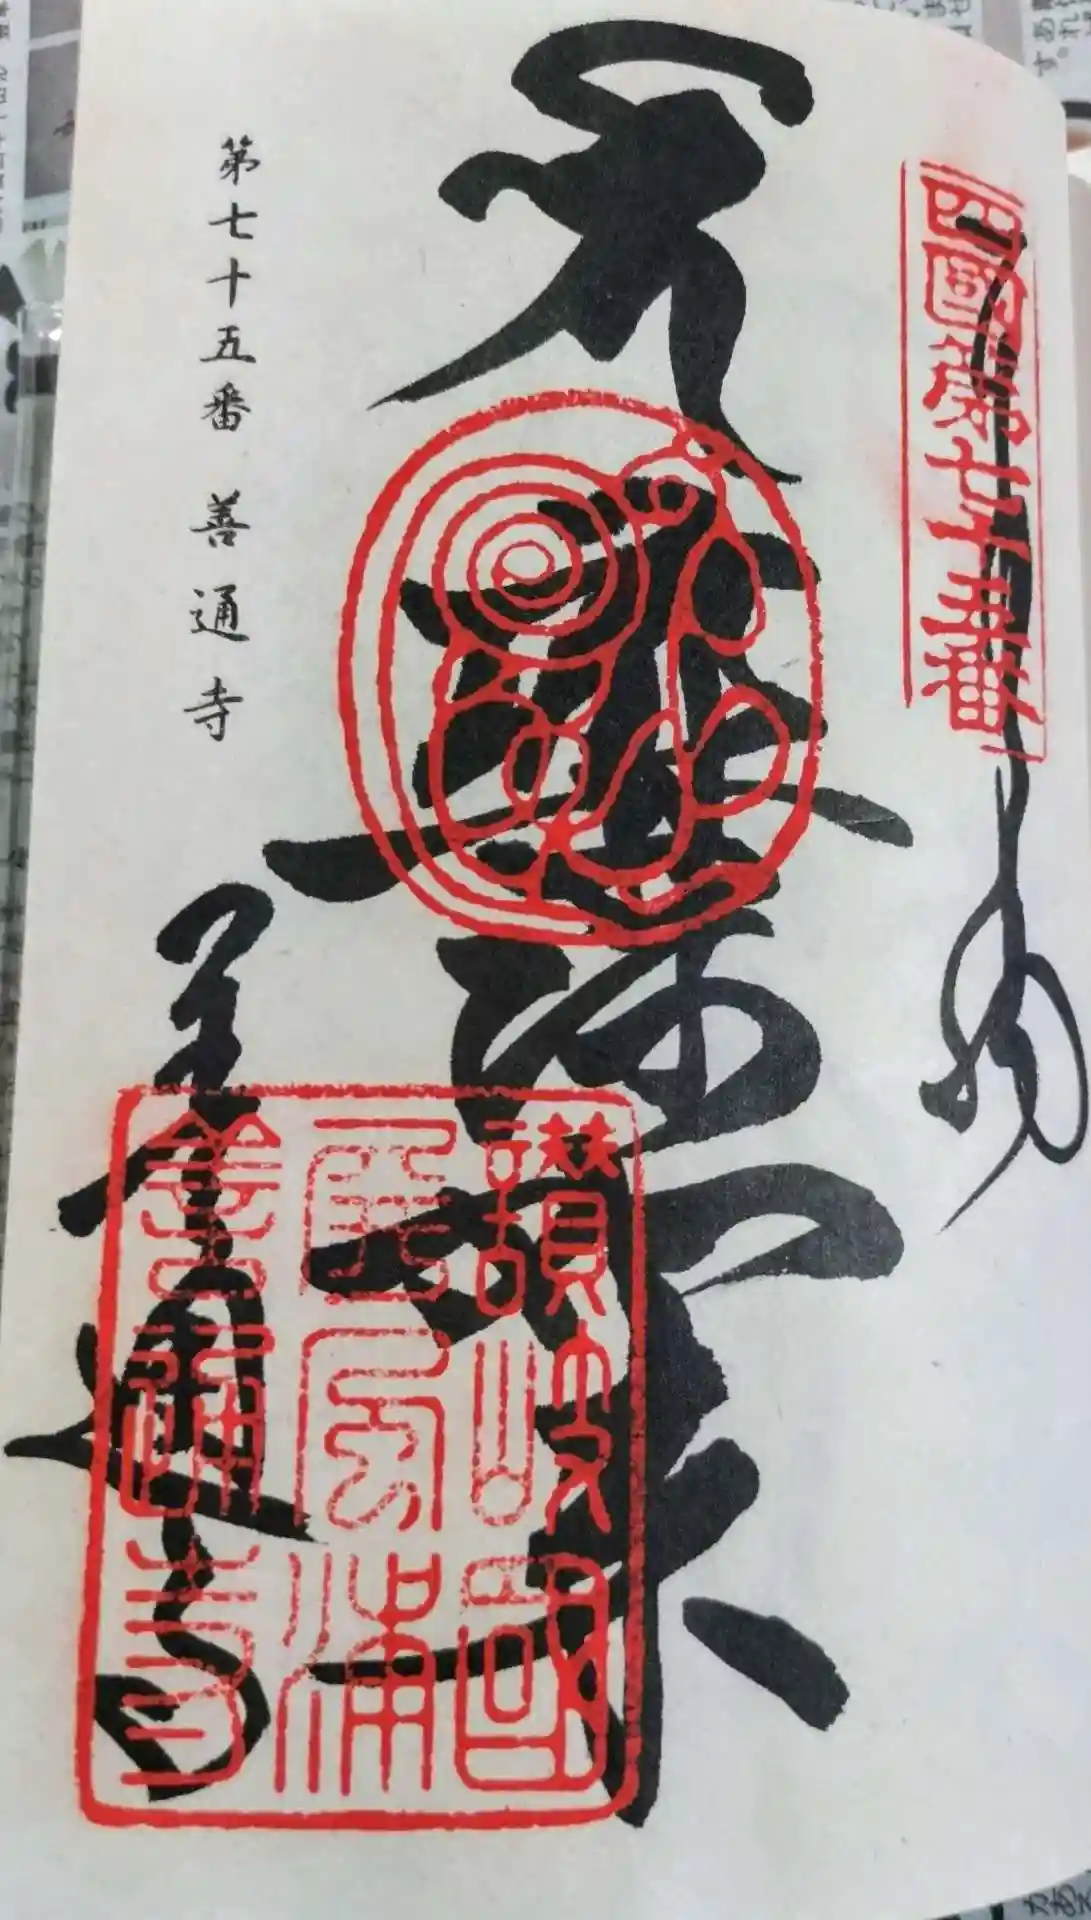 四國第七十五番
奉納
薬師如来
讃岐國
屏風浦
善通寺
善通寺
第七十五番 善通寺